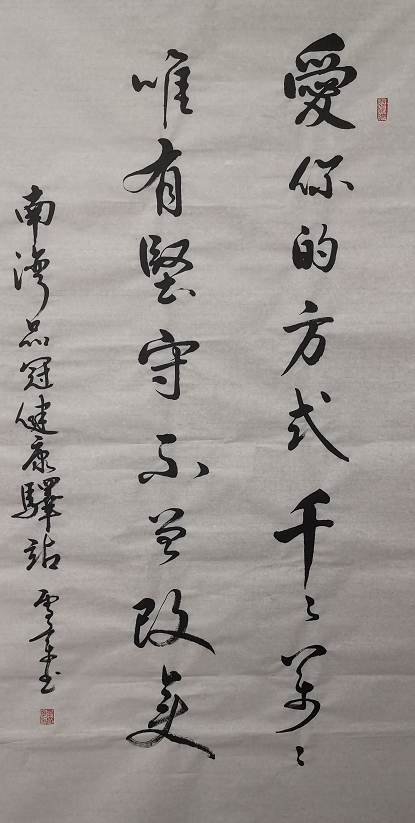 愛你的方式千〻萬〻
唯有堅守不曾改變
南灣品冠健康驛站 书